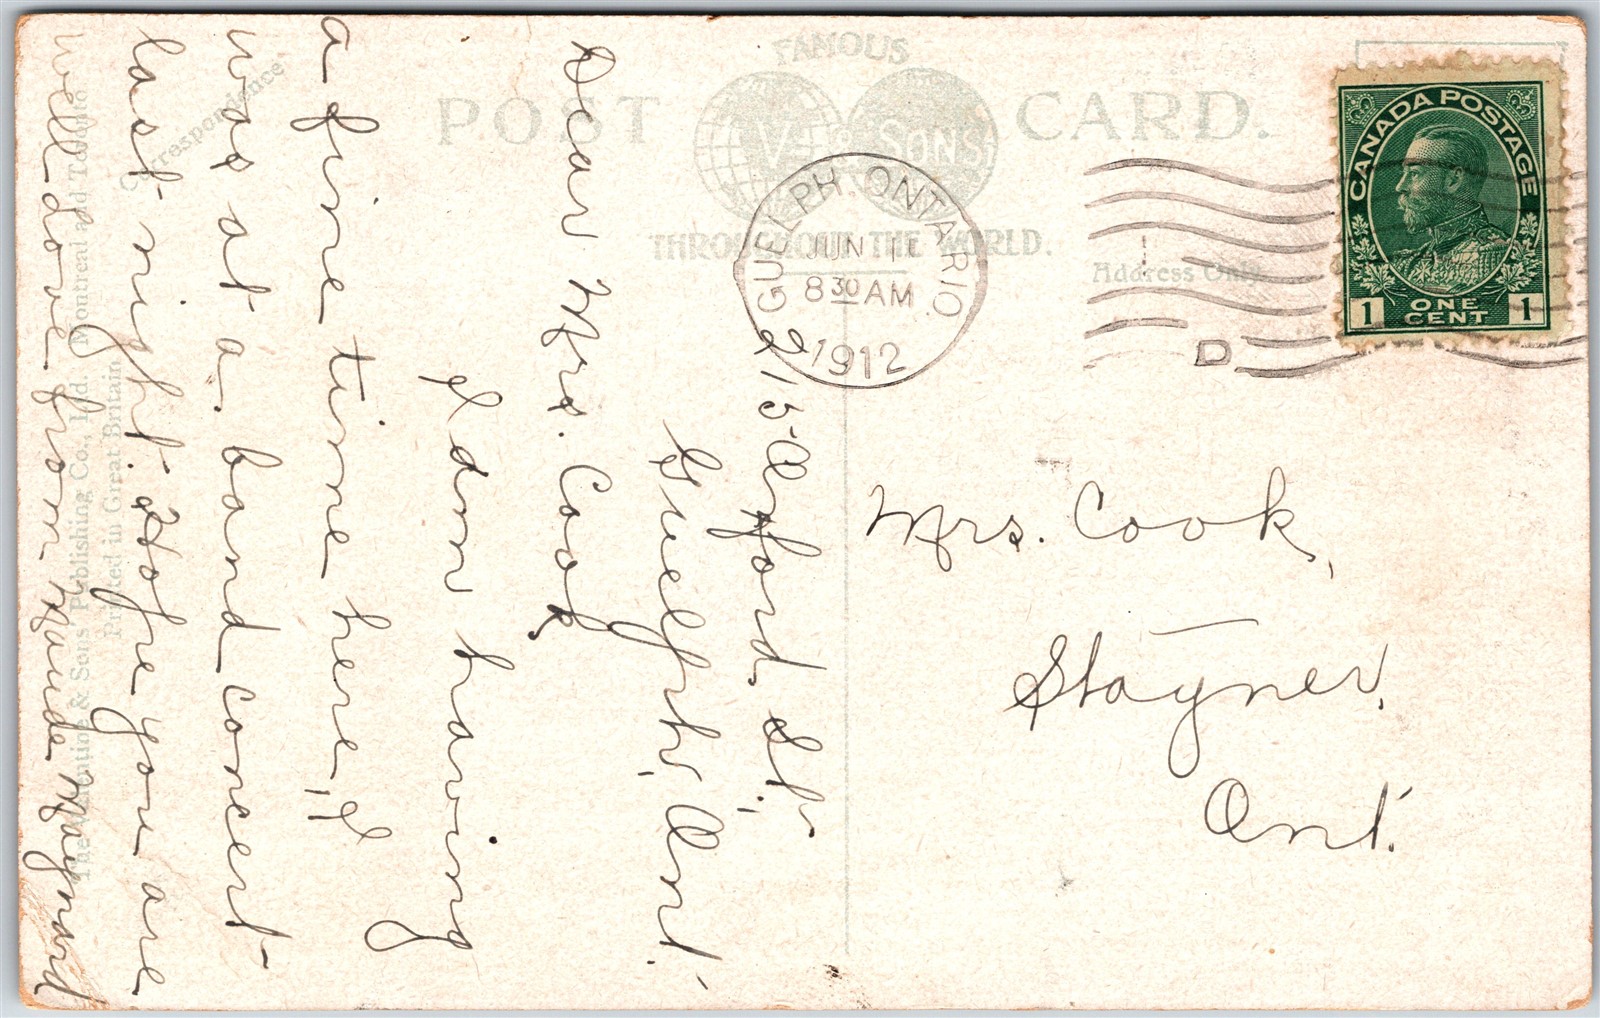 FAMOUS
POST CARD.
V & SONS
THROUGHOUT THE WORLD.
GUELPH ONTARIO
JUN 11
8 30 AM
1912
D
CANADA POSTAGE
1 ONE CENT 1
Address Only.
Correspondence
The Valentine & Sons' Publishing Co., Ltd. Montreal and Toronto.
Printed in Great Britain
215 Oxford St.,
Guelph, Ont.
Dear Mrs. Cook
I am having
a fine time here, I
was at a band concert
last night. Hope you are
well. Love from Maude Maynard
Mrs. Cook,
Stayner,
Ont.